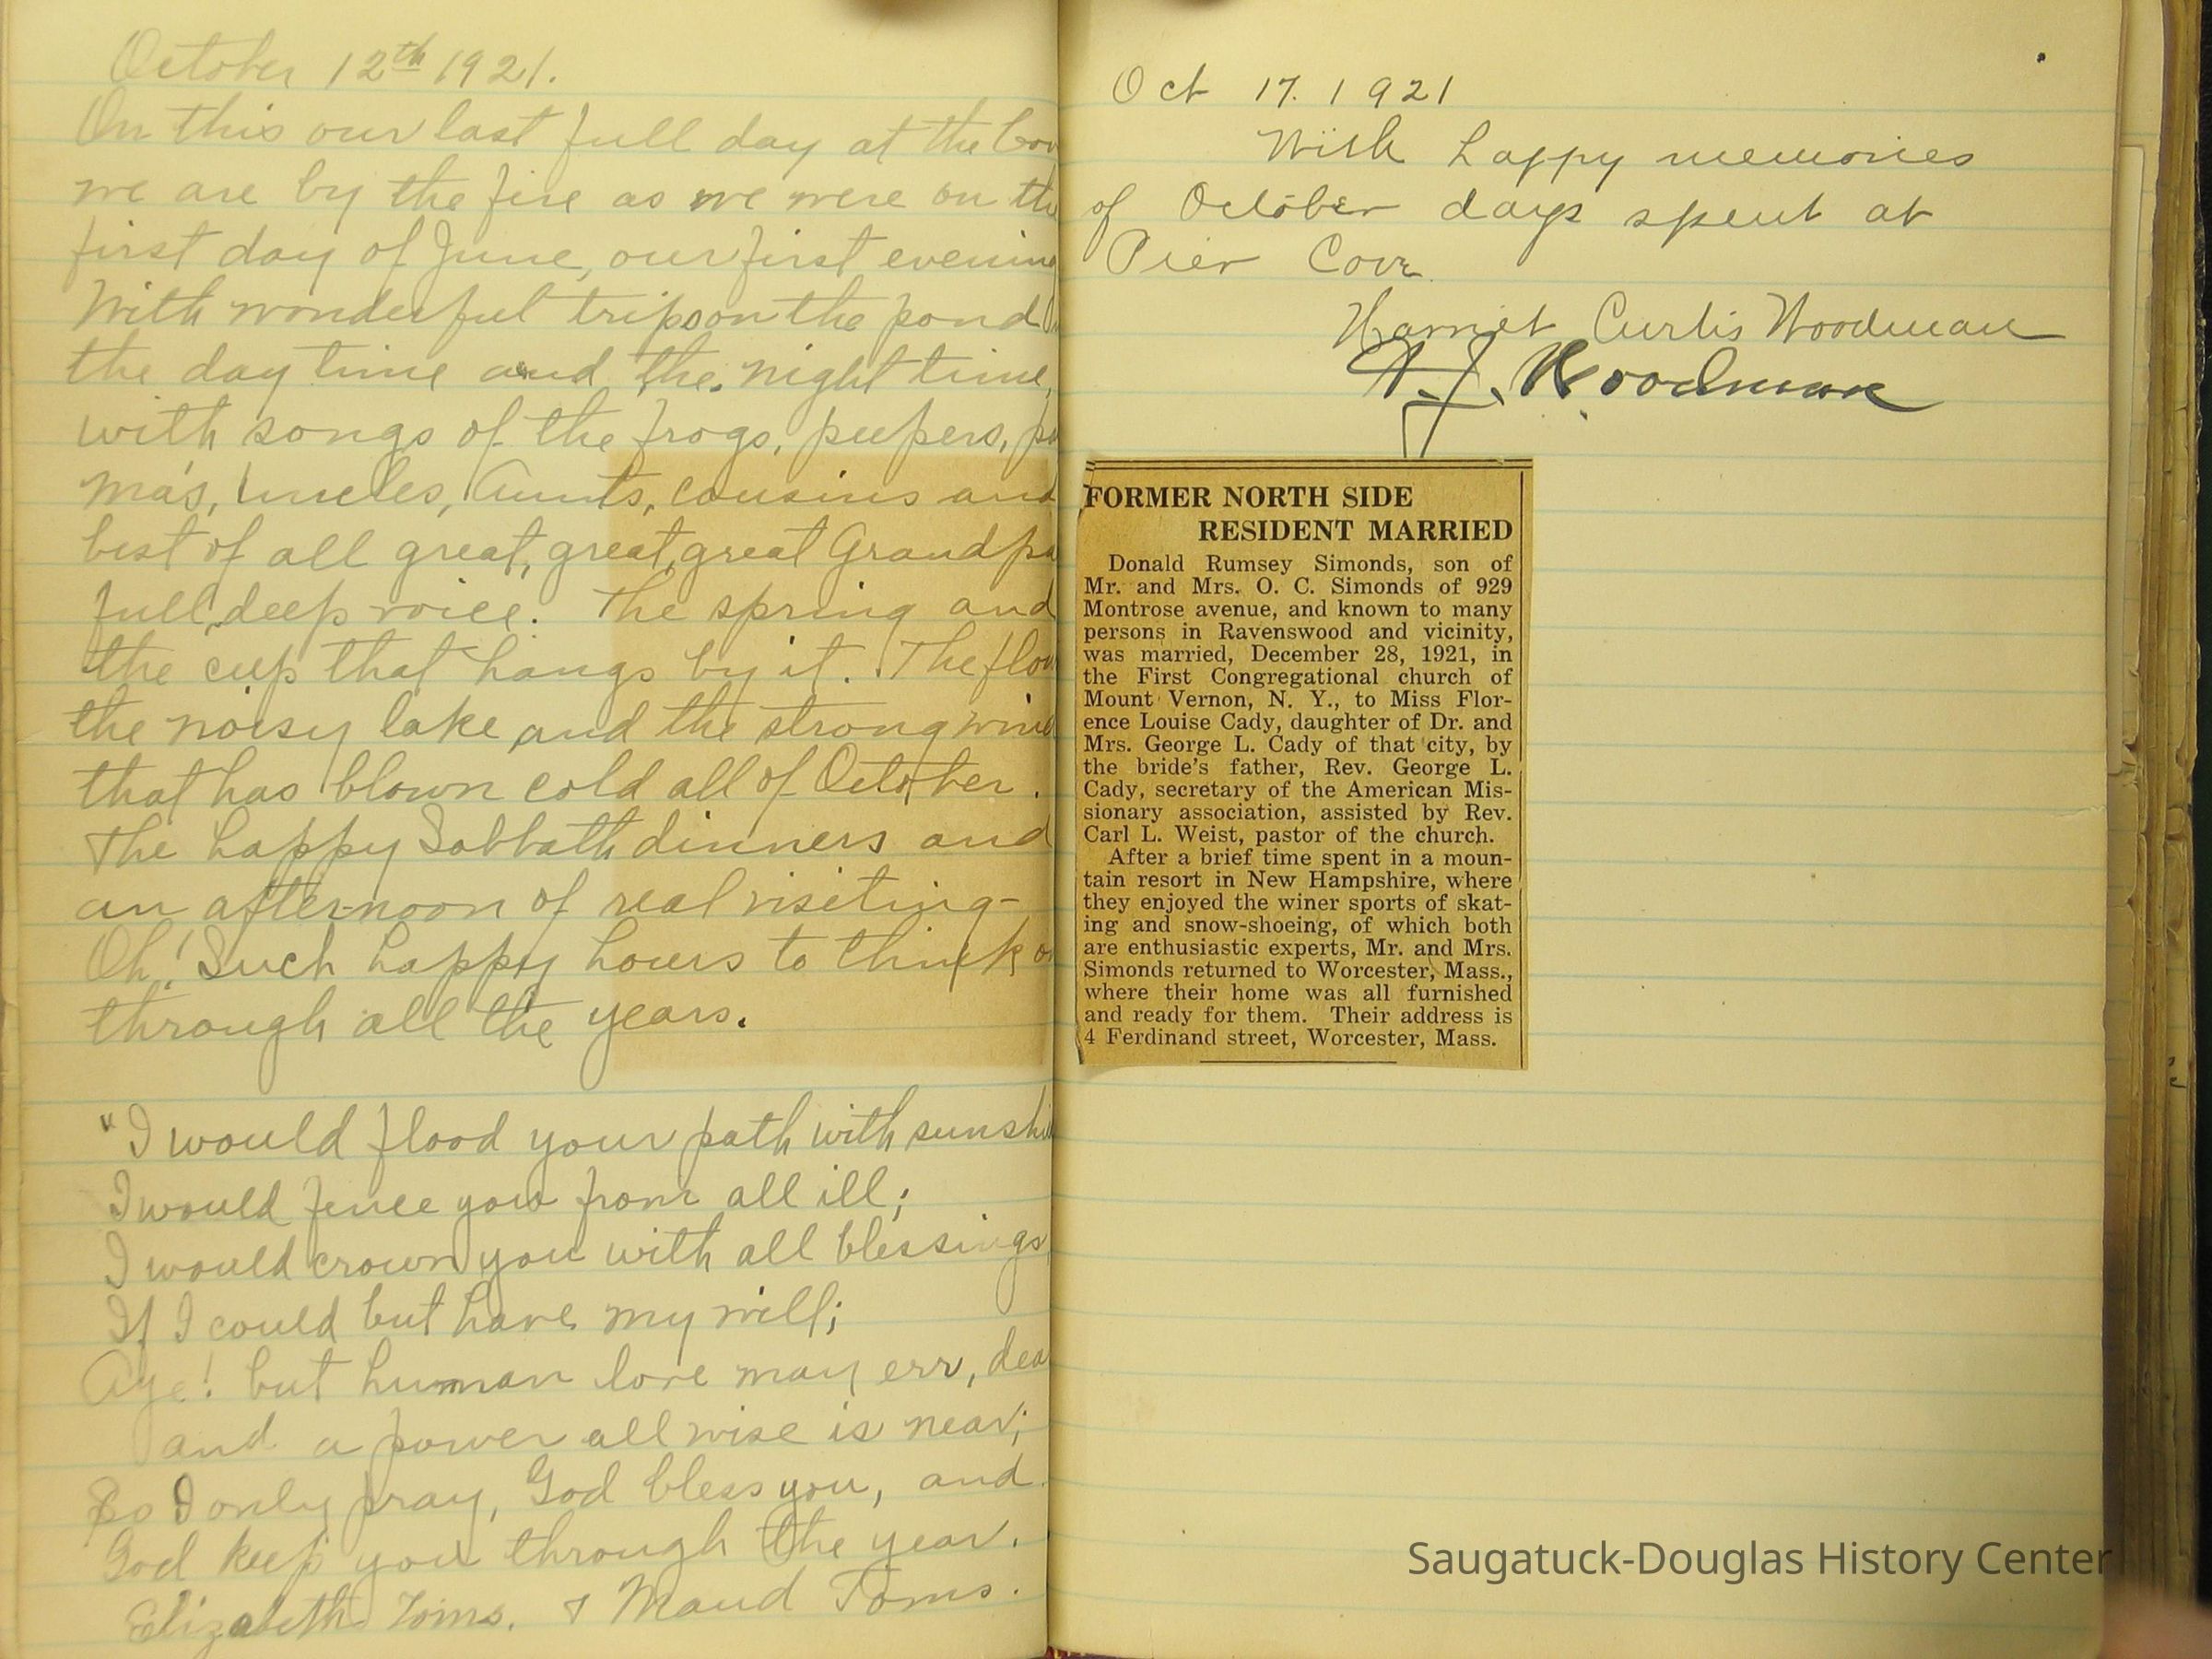 October 12th 1921.
On this our last full day at the Cov
we are by the fire as we were on the
first day of June, our first evening
With wonderful trips on the pond
the day time and the night time,
with songs of the frogs, peepers, pa
ma's, Uncles, Aunts, cousins and
best of all great, great, great Grandpa
full, deep voice. The spring and
the cup that hangs by it. The flow
the noisy lake and the strong wind
that has blown cold all of October.
The happy Sabbath dinners and
an afternoon of real visiting-
Oh! Such happy hours to think o
through all the years.
"I would flood your path with sunshi
I would fence you from all ill;
I would crown you with all blessings
If I could but have my will;
Aye! but human love may err, dea
and a power all wise is near;
So I only pray, God bless you, and
God keep you through the year.
Elizabeth Toms. & Maud Toms.
Oct 17. 1921
With happy memories
of October days spent at
Pier Cove
Harriet Curtis Woodman
Woodman
FORMER NORTH SIDE
RESIDENT MARRIED
Donald Rumsey Simonds, son of
Mr. and Mrs. O. C. Simonds of 929
Montrose avenue, and known to many
persons in Ravenswood and vicinity,
was married, December 28, 1921, in
the First Congregational church of
Mount Vernon, N. Y., to Miss Flor-
ence Louise Cady, daughter of Dr. and
Mrs. George L. Cady of that city, by
the bride's father, Rev. George L.
Cady, secretary of the American Mis-
sionary association, assisted by Rev.
Carl L. Weist, pastor of the church.
After a brief time spent in a moun-
tain resort in New Hampshire, where
they enjoyed the winer sports of skat-
ing and snow-shoeing, of which both
are enthusiastic experts, Mr. and Mrs.
Simonds returned to Worcester, Mass.,
where their home was all furnished
and ready for them. Their address is
4 Ferdinand street, Worcester, Mass.
Saugatuck-Douglas History Center